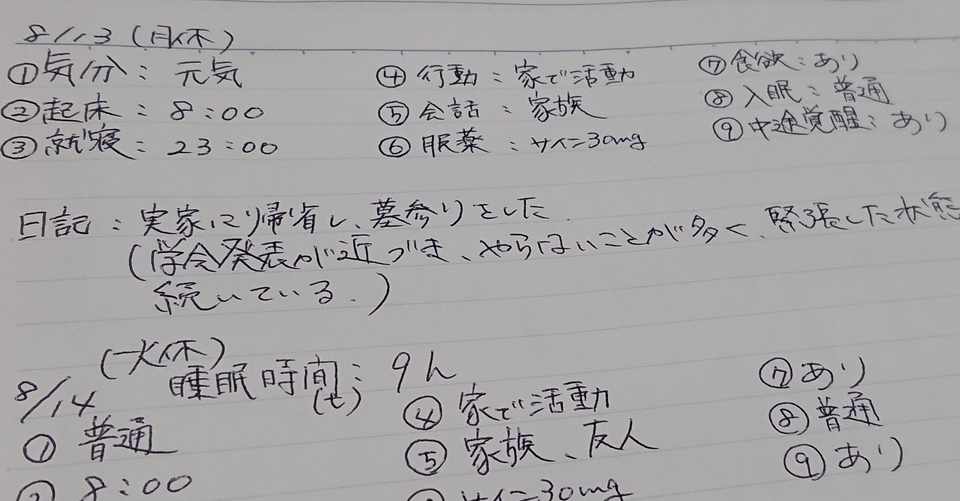 8/13 (月休)
①気分：元気 ④行動：家で活動 ⑦食欲：あり
②起床：8:00 ⑤会話：家族 ⑧入眠：普通
③就寝：23:00 ⑥服薬：サイン30mg ⑨中途覚醒：あり
日記：実家に帰省し、墓参りをした.
(学会発表が近づき、やらないことが多く、緊張した状態
続いている.)
8/14 (火休) 睡眠時間：9h
①普通 ④家で活動 ⑦あり
8:00 ⑤家族、友人 ⑧普通
サイン30mg ⑨あり